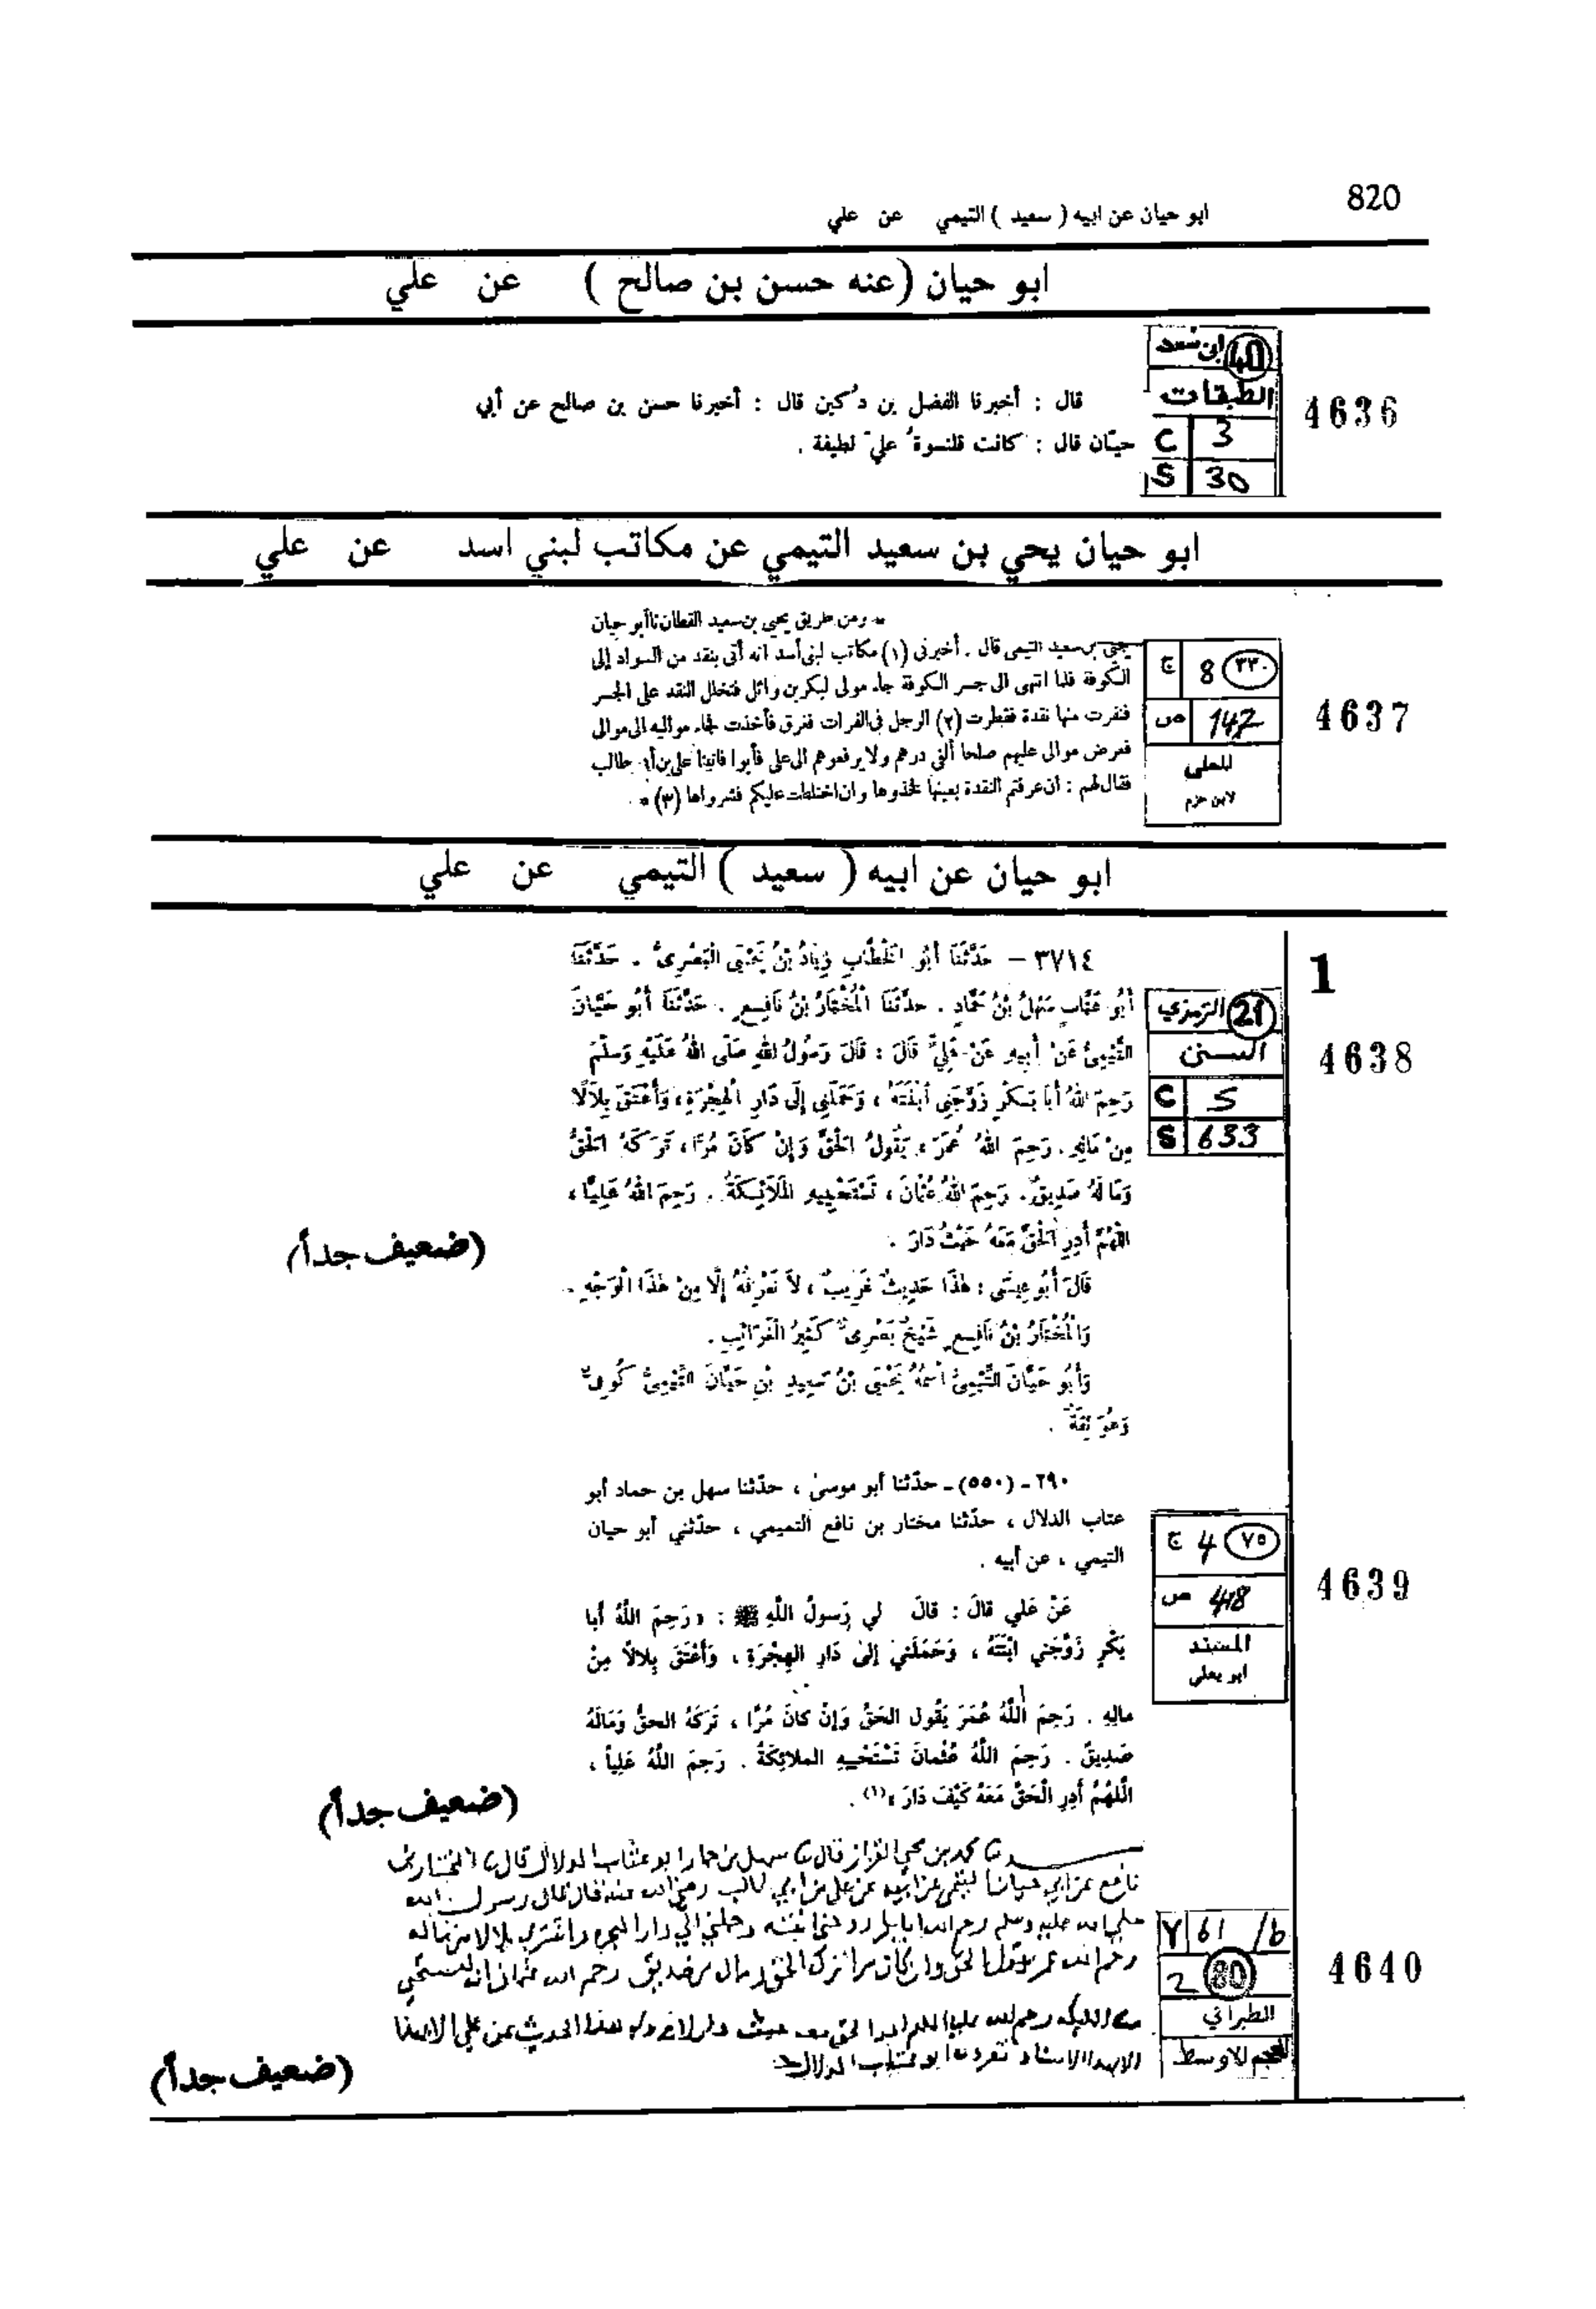 820
ابو حيان عن ابيه ( سعيد ) التيمي عن علي
ابو حيان (عنه حسن بن صالح ) عن علي
40 ابن سعد
الطبقات
C 3
S 30
4636
قال : أخبرنا الفضل بن دُكين قال : أخبرنا حسن بن صالح عن أبي
حيّان قال : كانت قلنسوةُ عليّ لطيفة .
ابو حيان يحي بن سعيد التيمي عن مكاتب لبني اسد عن علي
ومن طريق يحيى بن سعيد القطان نا أبو حيان
يحيى بن سعيد التيمى قال . أخبرنى (١) مكاتب لبنى أسد انه أتى بنقد من السواد إلى
الكوفة فلما انتهى الى جسر الكوفة جاء مولى لبكر بن وائل فتخلل النقد على الجسر
فنفرت منها نقدة فقطرت (٢) الرجل فى الفرات فغرق فأخذت فجاء مواليه الى موالى
فعرض موالى عليهم صلحا ألفى درهم ولا يرفعوهم الى على فأبوا فاتينا على بن أبى طالب
فقال لهم : ان عرفتم النقدة بعينها فخذوها وان اختلطت عليكم فشرواها (٣) *
ج 8 ٢٣٠
ص 147
المحلى
لابن حزم
4637
ابو حيان عن ابيه ( سعيد ) التيمي عن علي
1
٣٧١٤ – حَدَّثَنَا أَبُو الْخَطَّابِ زِيَادُ بْنُ يَحْيَى الْبَصْرِىُّ . حَدَّثَنَا
أَبُو عَتَّابٍ سَهْلُ بْنُ حَمَّادٍ . حَدَّثَنَا الْمُخْتَارُ بْنُ نَافِعٍ . حَدَّثَنَا أَبُو حَيَّانَ
التَّيْمِىُّ عَنْ أَبِيهِ عَنْ عَلِىٍّ قَالَ : قَالَ رَسُولُ اللهِ صَلَّى اللهُ عَلَيْهِ وَسَلَّمَ
رَحِمَ اللهُ أَبَا بَكْرٍ زَوَّجَنِى ابْنَتَهُ ، وَحَمَلَنِى إِلَى دَارِ الْهِجْرَةِ ، وَأَعْتَقَ بِلَالًا
مِنْ مَالِهِ . رَحِمَ اللهُ عُمَرَ ، يَقُولُ الْحَقَّ وَإِنْ كَانَ مُرًّا ، تَرَكَهُ الْحَقُّ
وَمَا لَهُ صَدِيقٌ . رَحِمَ اللهُ عُثْمَانَ ، تَسْتَحْيِيهِ الْمَلَائِكَةُ . رَحِمَ اللهُ عَلِيًّا ،
اللّٰهُمَّ أَدِرِ الْحَقَّ مَعَهُ حَيْثُ دَارَ .
(ضعيف جداً)
قَالَ أَبُو عِيسَى : هٰذَا حَدِيثٌ غَرِيبٌ ، لَا نَعْرِفُهُ إِلَّا مِنْ هٰذَا الْوَجْهِ .
وَالْمُخْتَارُ بْنُ نَافِعٍ شَيْخٌ بَصْرِىٌّ كَثِيرُ الْغَرَائِبِ .
وَأَبُو حَيَّانَ التَّيْمِىُّ اسْمُهُ يَحْيَى بْنُ سَعِيدِ بْنِ حَيَّانَ التَّيْمِىُّ كُوفِىٌّ
وَهُوَ ثِقَةٌ .
21 الترمذي
السنن
C 5
S 633
4638
٢٩٠ - (٥٥٠) - حدّثنا أبو موسىٰ ، حدّثنا سهل بن حماد أبو
عتاب الدلال ، حدّثنا مختار بن نافع التميمي ، حدّثني أبو حيان
التيمي ، عن أبيه .
عَنْ عَلي قالَ : قالَ لي رَسولُ اللَّهِ ﷺ : «رَحِمَ اللَّهُ أَبا
بَكْرٍ زَوَّجَني ابْنَتَهُ ، وَحَمَلَني إلىٰ دَارِ الهِجْرَةِ ، وَأَعْتَقَ بِلالاً مِنْ
مالِهِ . رَحِمَ اللَّهُ عُمَرَ يَقُول الحَقَّ وَإِنْ كانَ مُرّاً ، تَرَكَهُ الحقُّ وَمَالَهُ
صَدِيقٌ . رَحِمَ اللَّهُ عُثْمانَ تَسْتَحْيهِ الملائِكَةُ . رَحِمَ اللَّهُ عَلِيّاً ،
اللَّهُمَّ أَدِرِ الْحَقَّ مَعَهُ كَيْفَ دَارَ»(١) .
(ضعيف جداً)
ج 4 ٧٥
ص 418
المسند
ابو يعلى
4639
محمد بن يحي القزاز قال سهل بن حماد ابو عتاب الدلال قال المختار بن
نافع عن ابي حيان التيمي عن ابيه عن علي بن ابي طالب رضي الله عنه قال قال رسول الله
صلى الله عليه وسلم رحم الله ابا بكر زوجني ابنته وحملني الي دار الهجرة واشترى بلالا من ماله
رحم الله عمر يقول الحق وان كان مرا تركه الحق ومال من صديق رحم الله عثمان ان لتستحي
الملائكة رحم الله عليا اللهم ادر الحق معه حيث دار لا يروى هذا الحديث عن علي الا بهذا
الاسناد تفرد به ابو عتاب الدلال
(ضعيف جداً)
Y 61 /b
2 80
الطبراني
المعجم الاوسط
4640